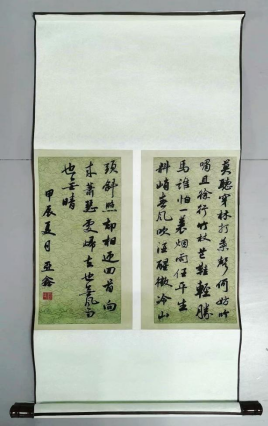 莫聽穿林打葉聲何妨吟
嘯且徐行竹杖芒鞋輕勝
馬誰怕一蓑烟雨任平生
料峭春風吹酒醒微冷山
頭斜照却相迎回首向
來蕭瑟處歸去也無風雨
也無晴
甲辰夏月亞鑫